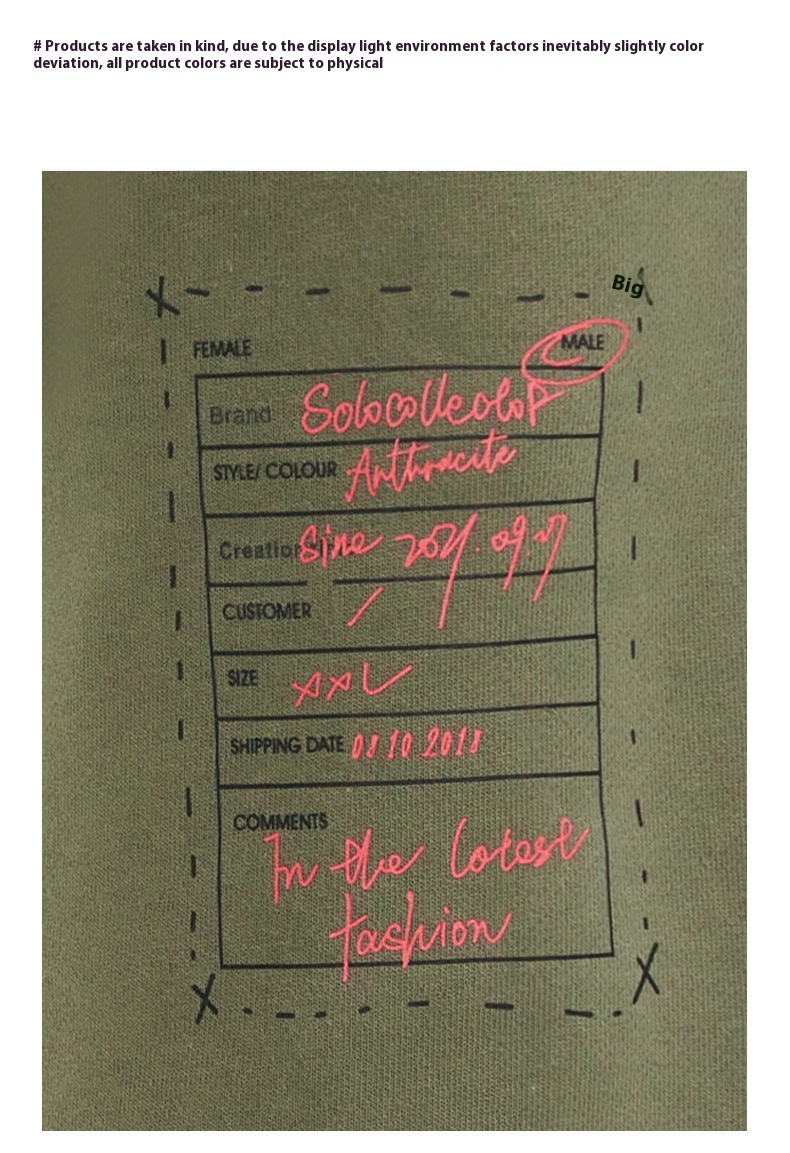 # Products are taken in kind, due to the display light environment factors inevitably slightly color
deviation, all product colors are subject to physical
Big
FEMALE MALE
Brand SolocolleoloP
STYLE/ COLOUR Anthracite
Creation Sine 2021.09.27
CUSTOMER /
SIZE XXL
SHIPPING DATE 08 10 2018
COMMENTS
In the latest
fashion